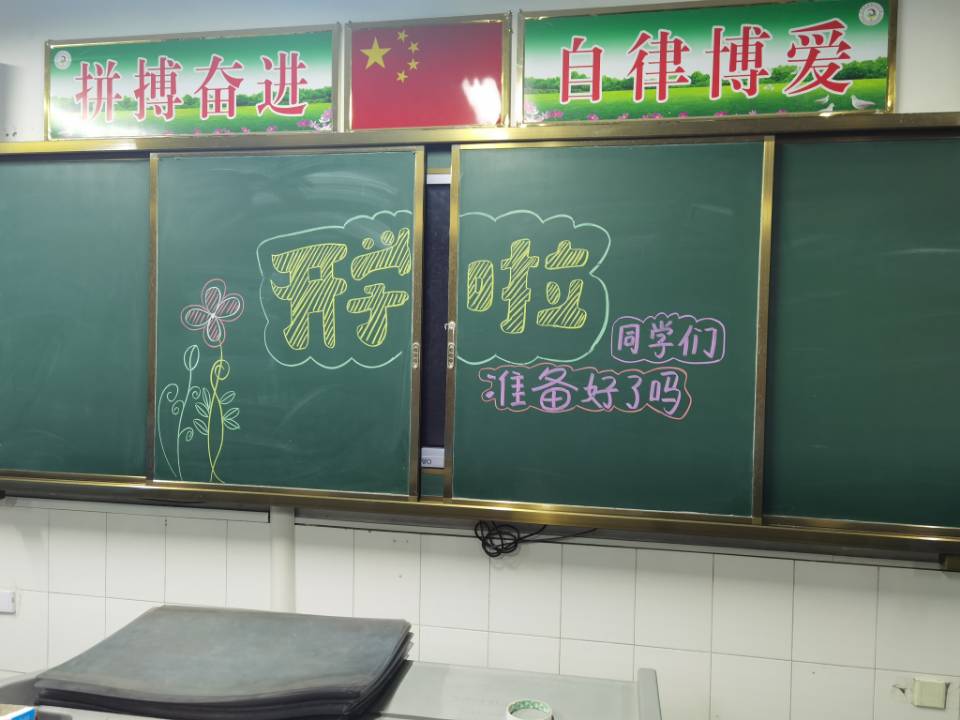 拼搏奋进
自律博爱
开学啦
同学们
准备好了吗